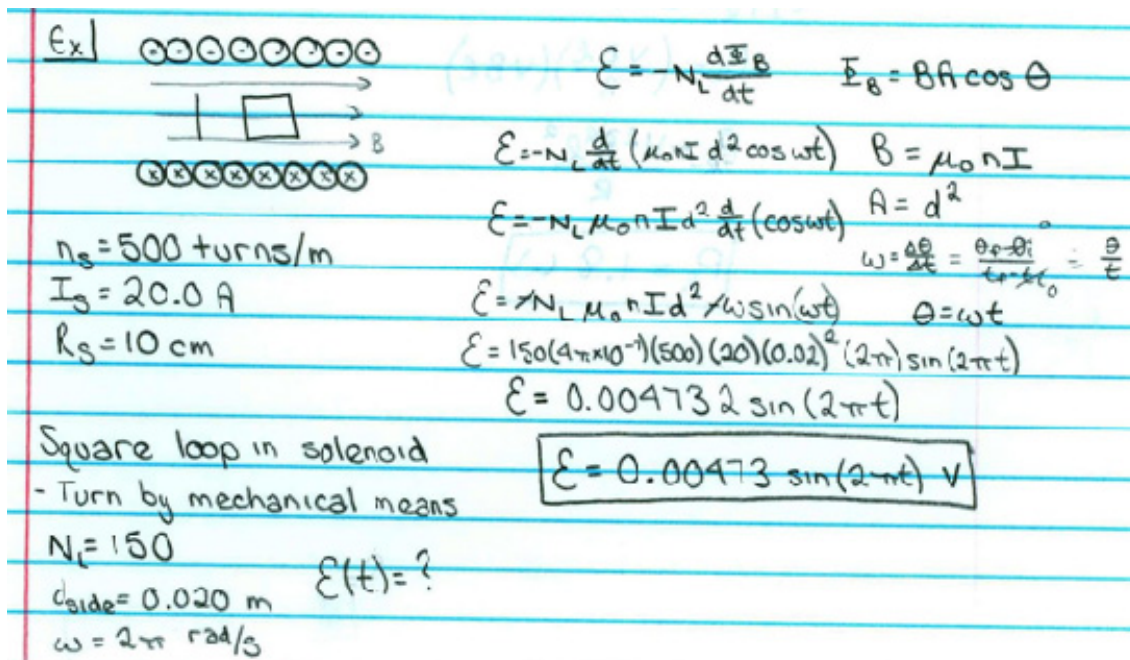 Ex]
B
n_s = 500 turns/m
I_s = 20.0 A
R_s = 10 cm
Square loop in solenoid
- Turn by mechanical means
N_L = 150
d_side = 0.020 m
ω = 2π rad/s
ε(t) = ?
ε = -N_L dΦ_B/dt Φ_B = BA cos θ
ε = -N_L d/dt (μ₀nI d² cos ωt) B = μ₀nI
ε = -N_L μ₀nId² d/dt (cos ωt) A = d²
ω = Δθ/Δt = (θ_f - θ_i)/(t_f - t_i) = θ/t
ε = -N_L μ₀nId² -ω sin(ωt) θ = ωt
ε = 150(4π×10⁻⁷)(500)(20)(0.02)²(2π) sin(2πt)
ε = 0.004732 sin(2πt)
ε = 0.00473 sin(2πt) V